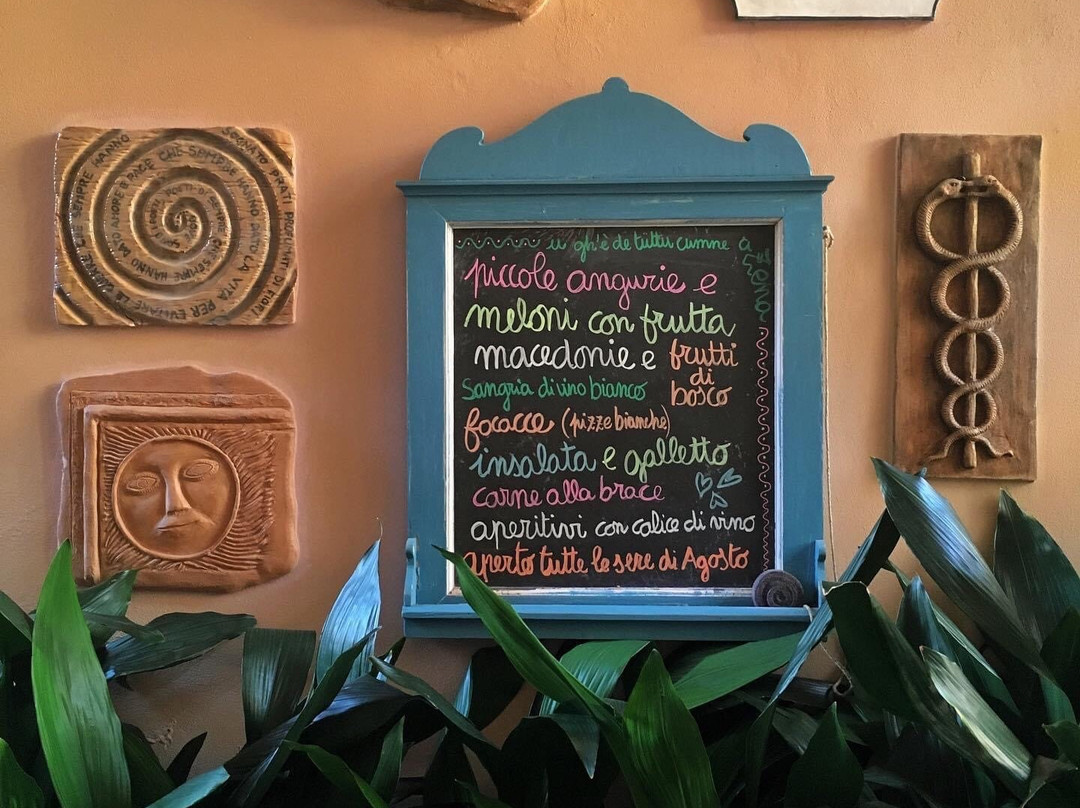 gh'è de tuttu cumme a
piccole angurie e
meloni con frutta
macedonie e frutti
di
bosco
Sangria di vino bianco
focacce (pizze bianche)
insalata e galletto
carne alla brace
aperitivi con calice di vino
aperto tutte le sere di Agosto
SEMPRE HANNO
SOGNATO PRATI PROFUMATI DI FIORI
PACE CHE SEMPRE HANNO DATO LA VITA PER